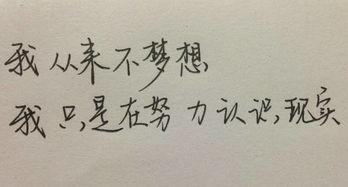 我从来不梦想,
我只是在努力认识,现实